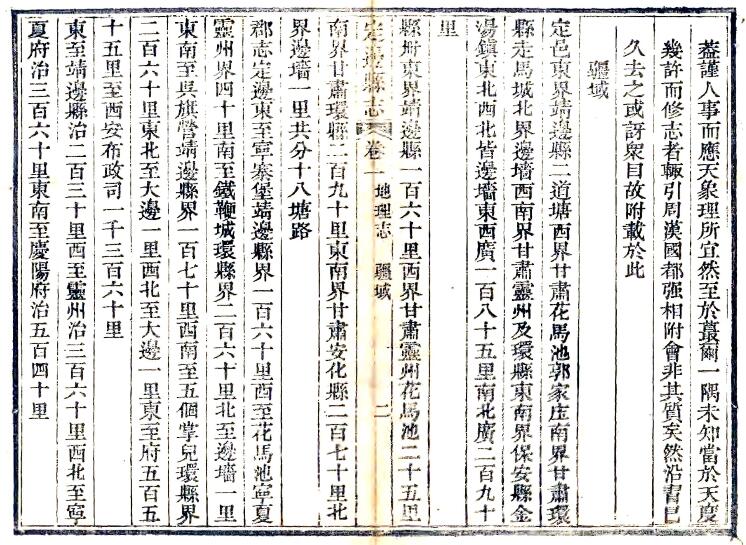 葢謹人事而應天象理所宜然至於蕞爾一隅未知當於天度
幾許而修志者輙引周漢國都强相附會非其質矣然沿習已
久去之或訝衆目故附載於此
疆域
定邑東界靖邊縣二道塘西界甘肅花馬池郭家庄南界甘肅環
縣走馬城北界邊墻西南界甘肅靈州及環縣東南界保安縣金
湯鎮東北西北皆邊墻東西廣一百八十五里南北廣二百九十
里
縣街東界靖邊縣一百六十里西界甘肅靈州花馬池二十五里
定邊縣志 卷一 地理志 疆域 二
南界甘肅環縣二百九十里東南界甘肅安化縣二百七十里北
界邊墻一里共分十八塘路
郡志定邊東至寧塞堡靖邊縣界一百六十里西至花馬池寧夏
靈州界四十里南至鐵鞭城環縣界二百六十里北至邊墻一里
東南至吳旗營靖邊縣界一百七十里西南至五個掌兒環縣界
二百六十里東北至大邊一里西北至大邊一里東至府五百五
十五里至西安布政司一千三百六十里
東至靖邊縣治二百三十里西至靈州治三百六十里西北至寧
夏府治三百六十里東南至慶陽府治五百四十里